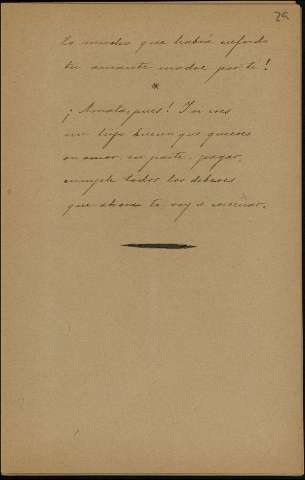 29
lo mucho que habrá sufrido
tu amante madre por ti!
*
¡Amala, pues! Si eres
un hijo bueno y quieres
su amor en parte pagar,
cumple todos los deberes
que ahora te voy á enseñar.